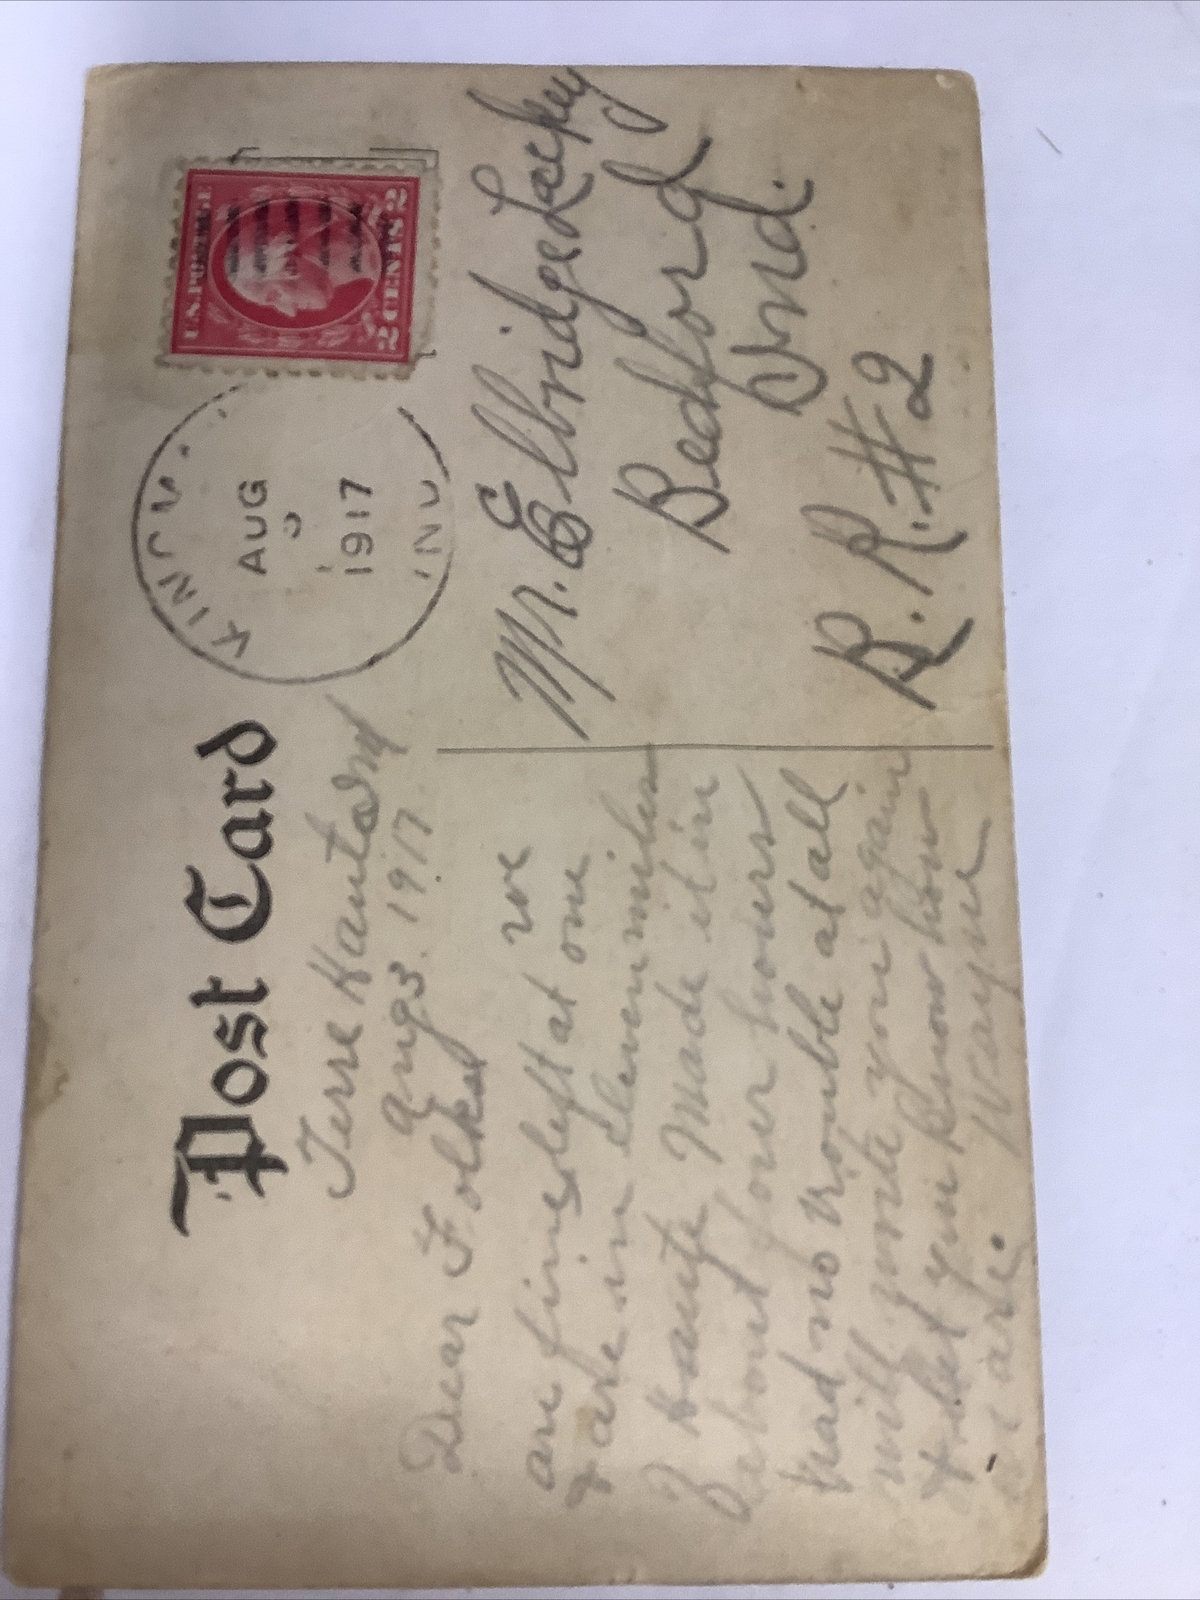 Post Card
AUG
1917
IND
U.S. POSTAGE
2 CENTS 2
Terre Haute Ind
Aug 3. 1917.
Dear Folks we
are fine left at one
& are in eleven miles
Haute Made it in
about four hours
had no trouble at all
will write you again
& let you know how
we are. Wayne
Mr. Elbridge Lackey
Bedford
Ind.
R. R. #2